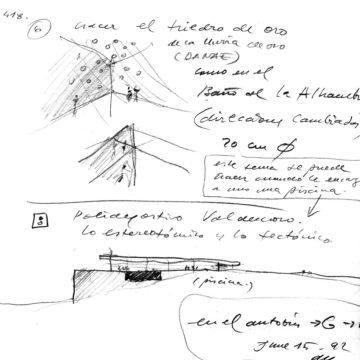 418.
6 hacer el triedro de oro
de la lluvia de oro
(DANAE)
como en el
Baño de la Alhambra
(direcciones cambiadas)
20 cm Ø
este tema se puede
hacer cuando le encargen
a uno una piscina.
8 Polideportivo Valdemoro.
Lo estereotómico y lo tectónico
(piscina.)
en el autobús → G →
June 15 - 92